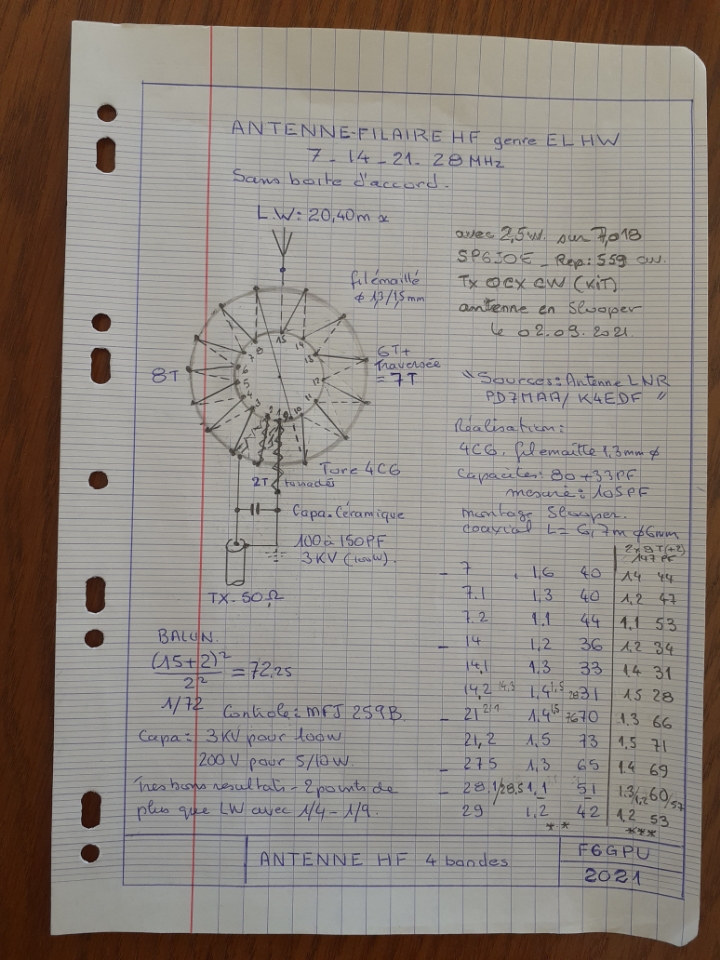 ANTENNE-FILAIRE HF genre ELHW
7 - 14 - 21 - 28 MHz
Sans boite d'accord.
L.W: 20,40m
avec 2,5W. sur 7,018
SP6JOE - Rep: 559 CW.
TX QCX CW (KIT)
antenne en Slooper
le 02.09.2021.
fil émaillé
φ 1,3/1,5mm
8T
6T+
traversée
= 7T
15
14
13
12
11
10
8
7
6
5
4
3
2
1
"Sources: Antenne LNR
PD7MAA / K4EDF "
Réalisation:
4C6. fil émaillé 1,3mm φ
Capacités: 80 + 33PF
mesuré: 105PF
montage Slooper.
coaxial L= 6,7m φ6mm
Tore 4C6
2T torsadés
Capa. Céramique
100 à 150PF
3KV (100W).
TX-50Ω
2x8T(+2)
147 PF
- 7 1,6 40 1,4 44
7.1 1,3 40 1,2 47
7.2 1,1 44 1,1 53
- 14 1,2 36 1,2 34
14,1 1,3 33 1,4 31
14,2 14,3 1,4 1,5 28 31 1,5 28
- 21 1,4 70 1,3 66
21,2 1,5 73 1,5 71
- 27.5 1,3 65 1.4 69
- 28,1/28,5 1,1 51 1,3/1,2 60/57
29 1,2 42 1,2 53
** ***
BALUN.
(15+2)² / 2² = 72,25
1/72
Controle: MFJ 259B.
Capa: 3KV pour 100W
200V pour 5/10W.
Tres bons resultats - 2 points de
plus que LW avec 1/4 - 1/9.
ANTENNE HF 4 bandes
F6GPU
2021